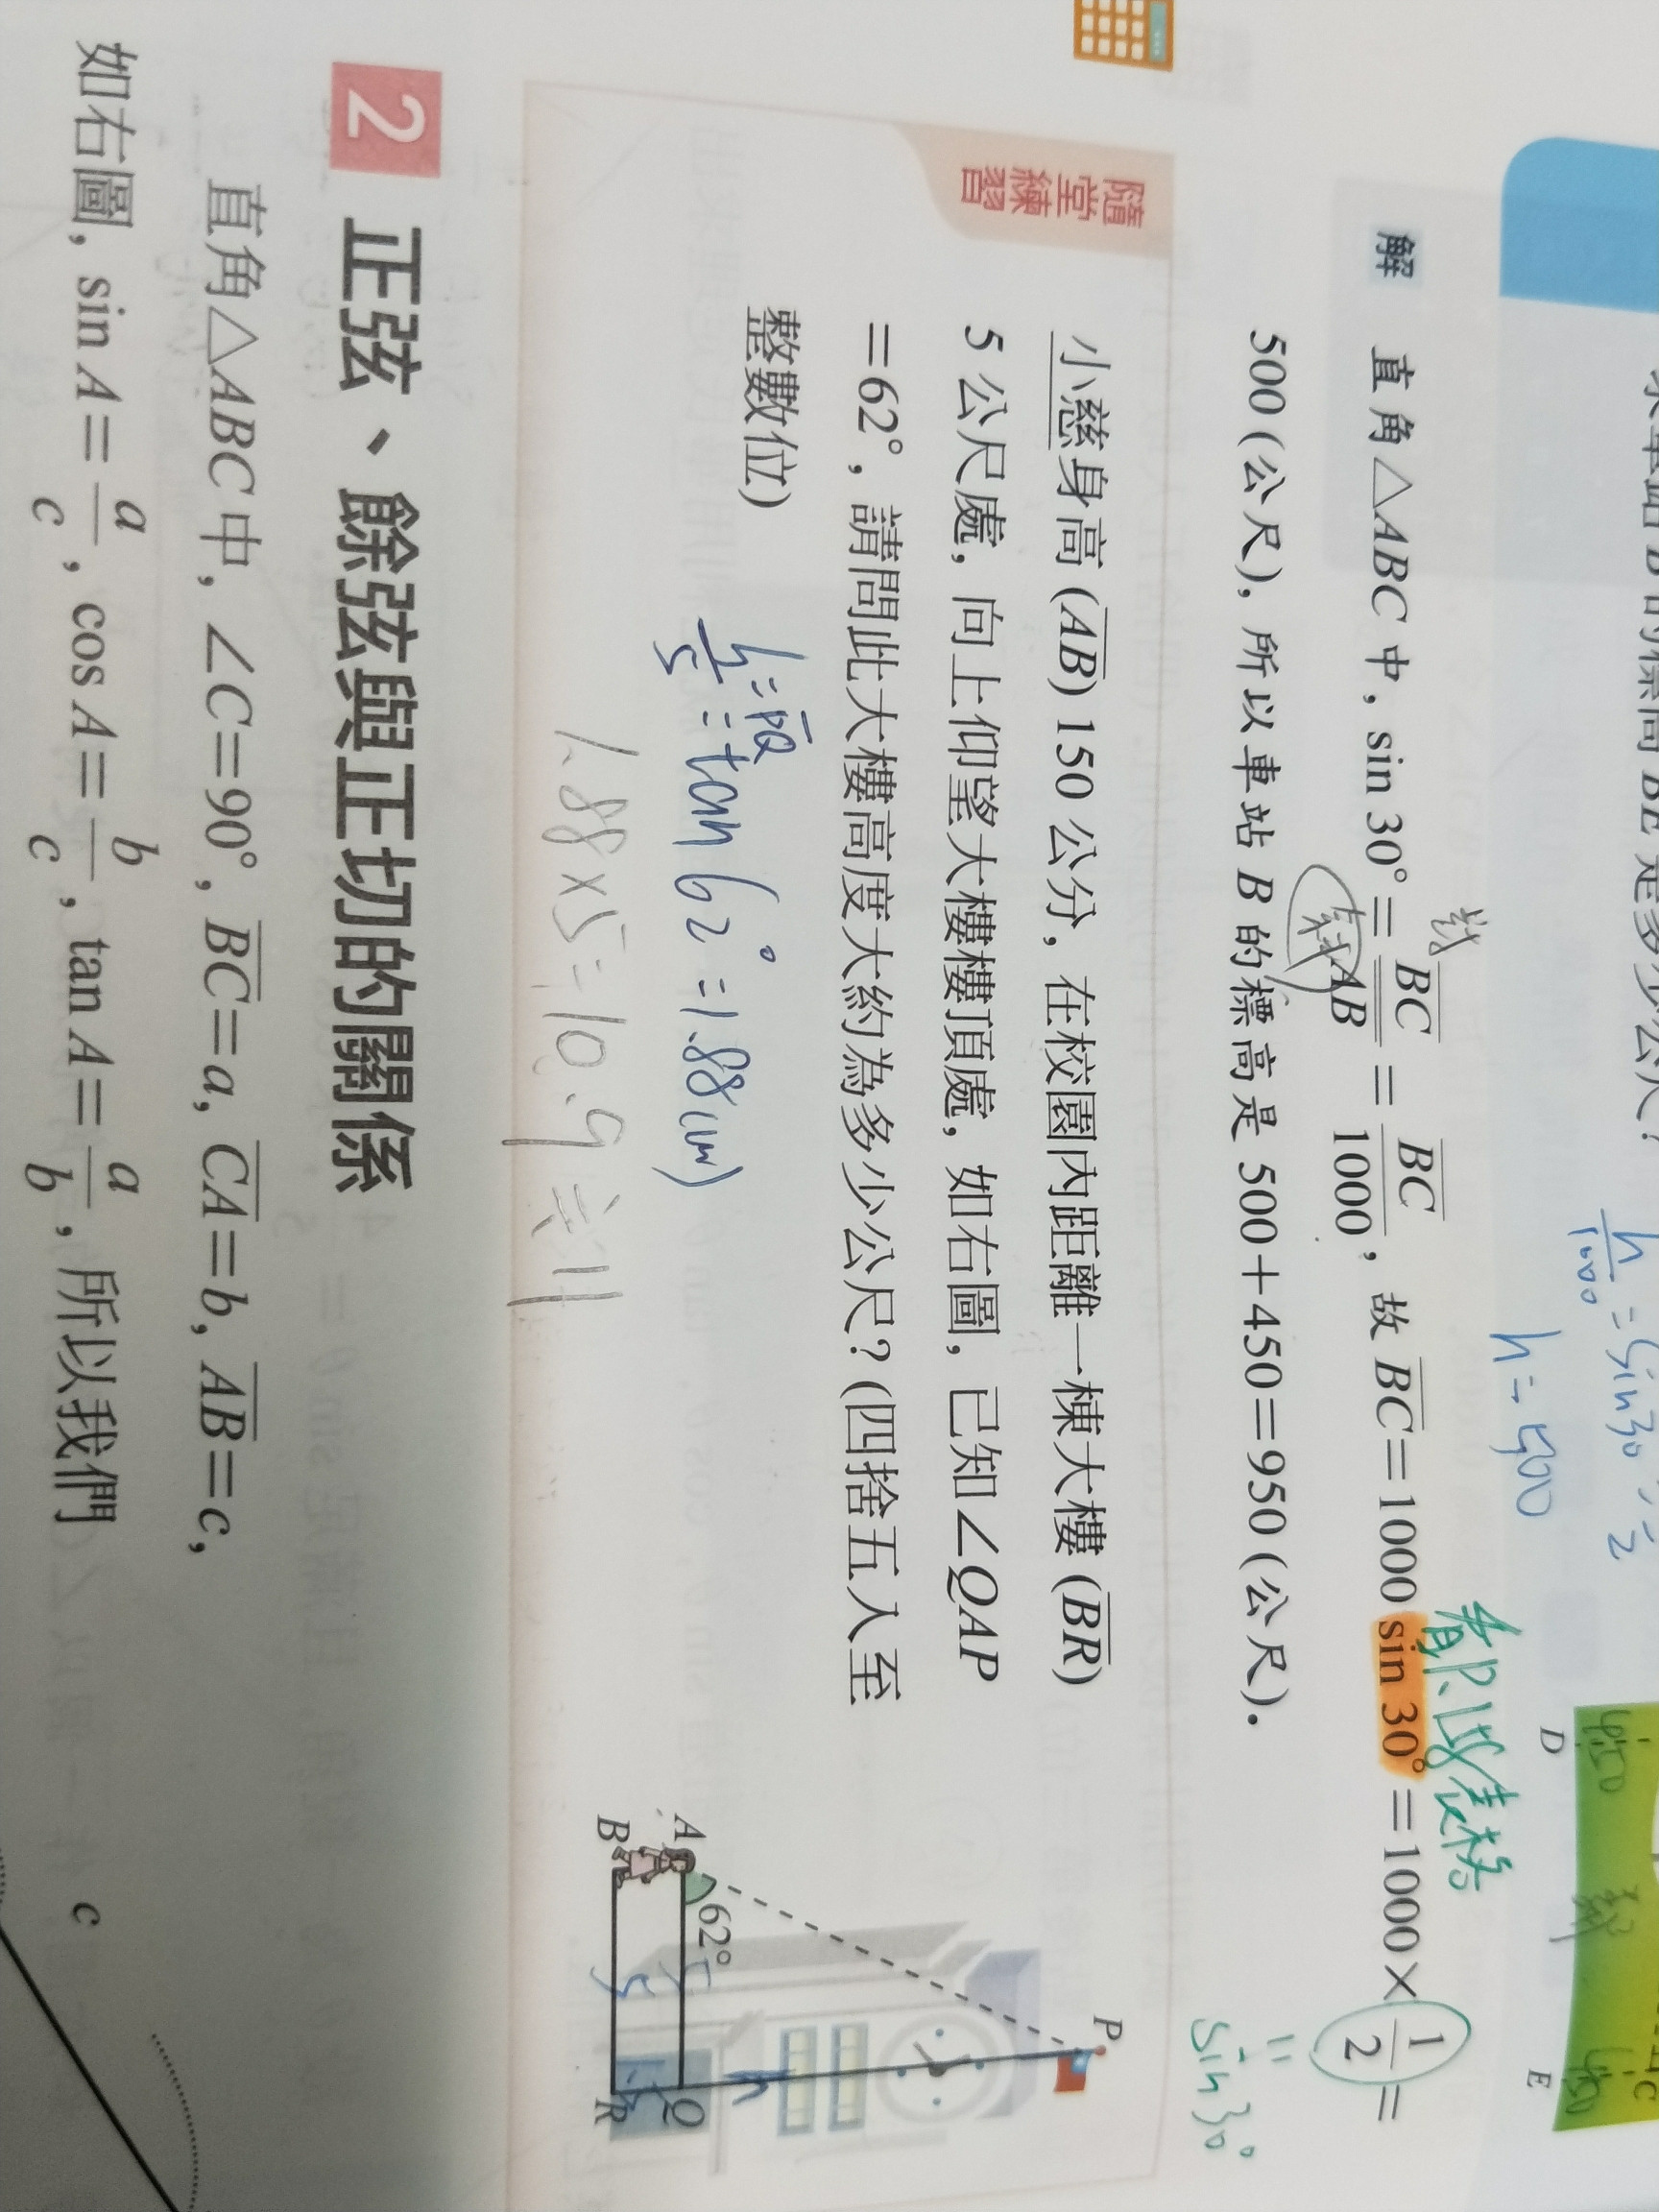 h/1000 = sin30° = 1/2
h=500
D
E
450
450
解 直角△ABC 中, sin 30°=BC/AB=BC/1000, 故 BC=1000 sin 30°=1000×1/2=
500 (公尺), 所以車站 B 的標高是 500+450=950 (公尺).
對
斜
都以表格
sin30°
隨堂
練習
小慈身高 (AB) 150 公分, 在校園內距離一棟大樓 (BR)
5 公尺處, 向上仰望大樓樓頂處, 如右圖, 已知∠QAP
=62°, 請問此大樓高度大約為多少公尺? (四捨五入至
整數位)
h=PQ
h/5=tan 62°=1.88(cm)
1.88×5=10.9≒11
P
A
62°
5
Q
h
B
5
R
2 正弦、餘弦與正切的關係
直角△ABC 中, ∠C=90°, BC=a, CA=b, AB=c,
如右圖, sin A=a/c, cos A=b/c, tan A=a/b, 所以我們
c